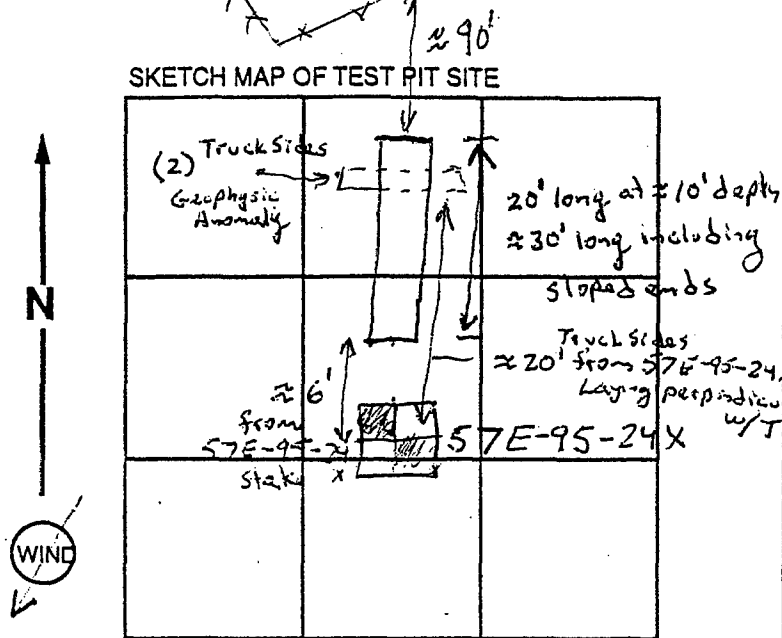 ≈ 90'
SKETCH MAP OF TEST PIT SITE
(2) Truck Sides
Geophysic
Anomaly
20' long at ≈ 10' depth
≈ 30' long including
sloped ends
N
Truck Sides
≈ 20' from 57E-95-24
Laying
w/T
≈ 6'
from
57E-95-24
stake
57E-95-24X
WIND